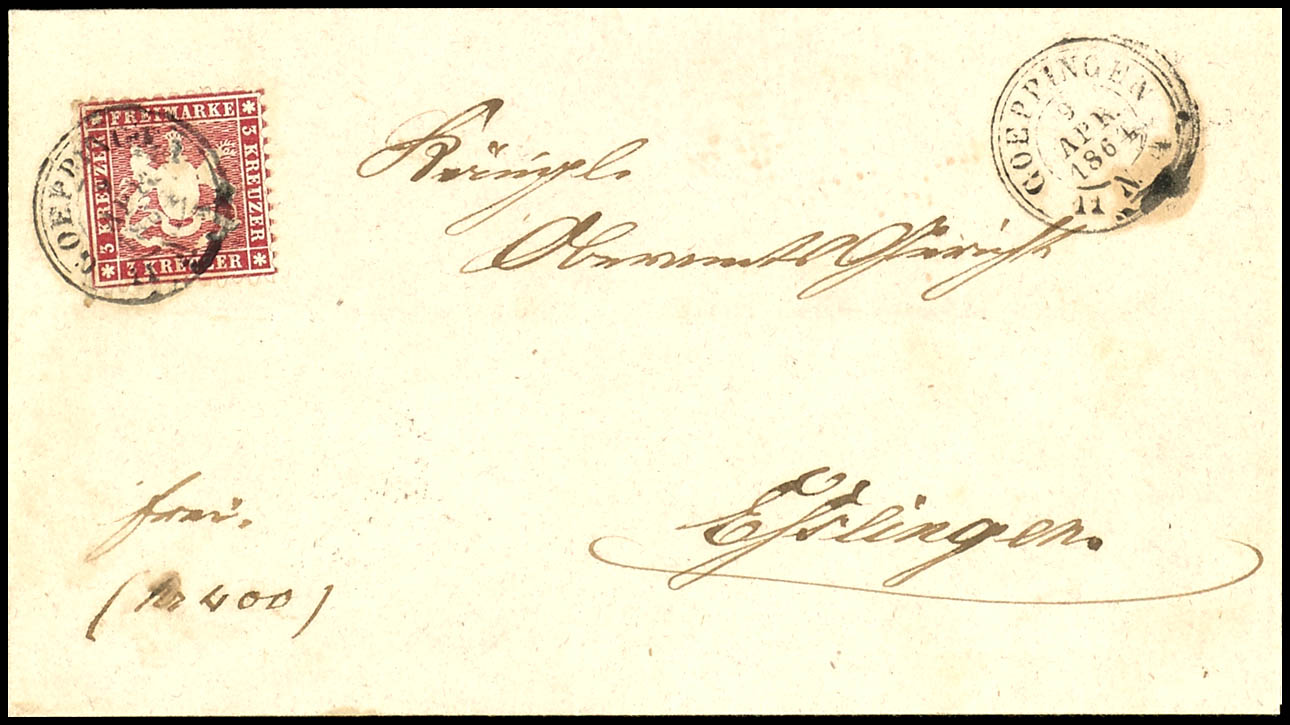 FREIMARKE
3 KREUZER
3 KREUZER
3 KREUZER
GOEPPINGEN
GOEPPINGEN
9
APR.
1864
11 N
Königl.
Oberamts Gericht
Esslingen.
frei.
(Nr 400)